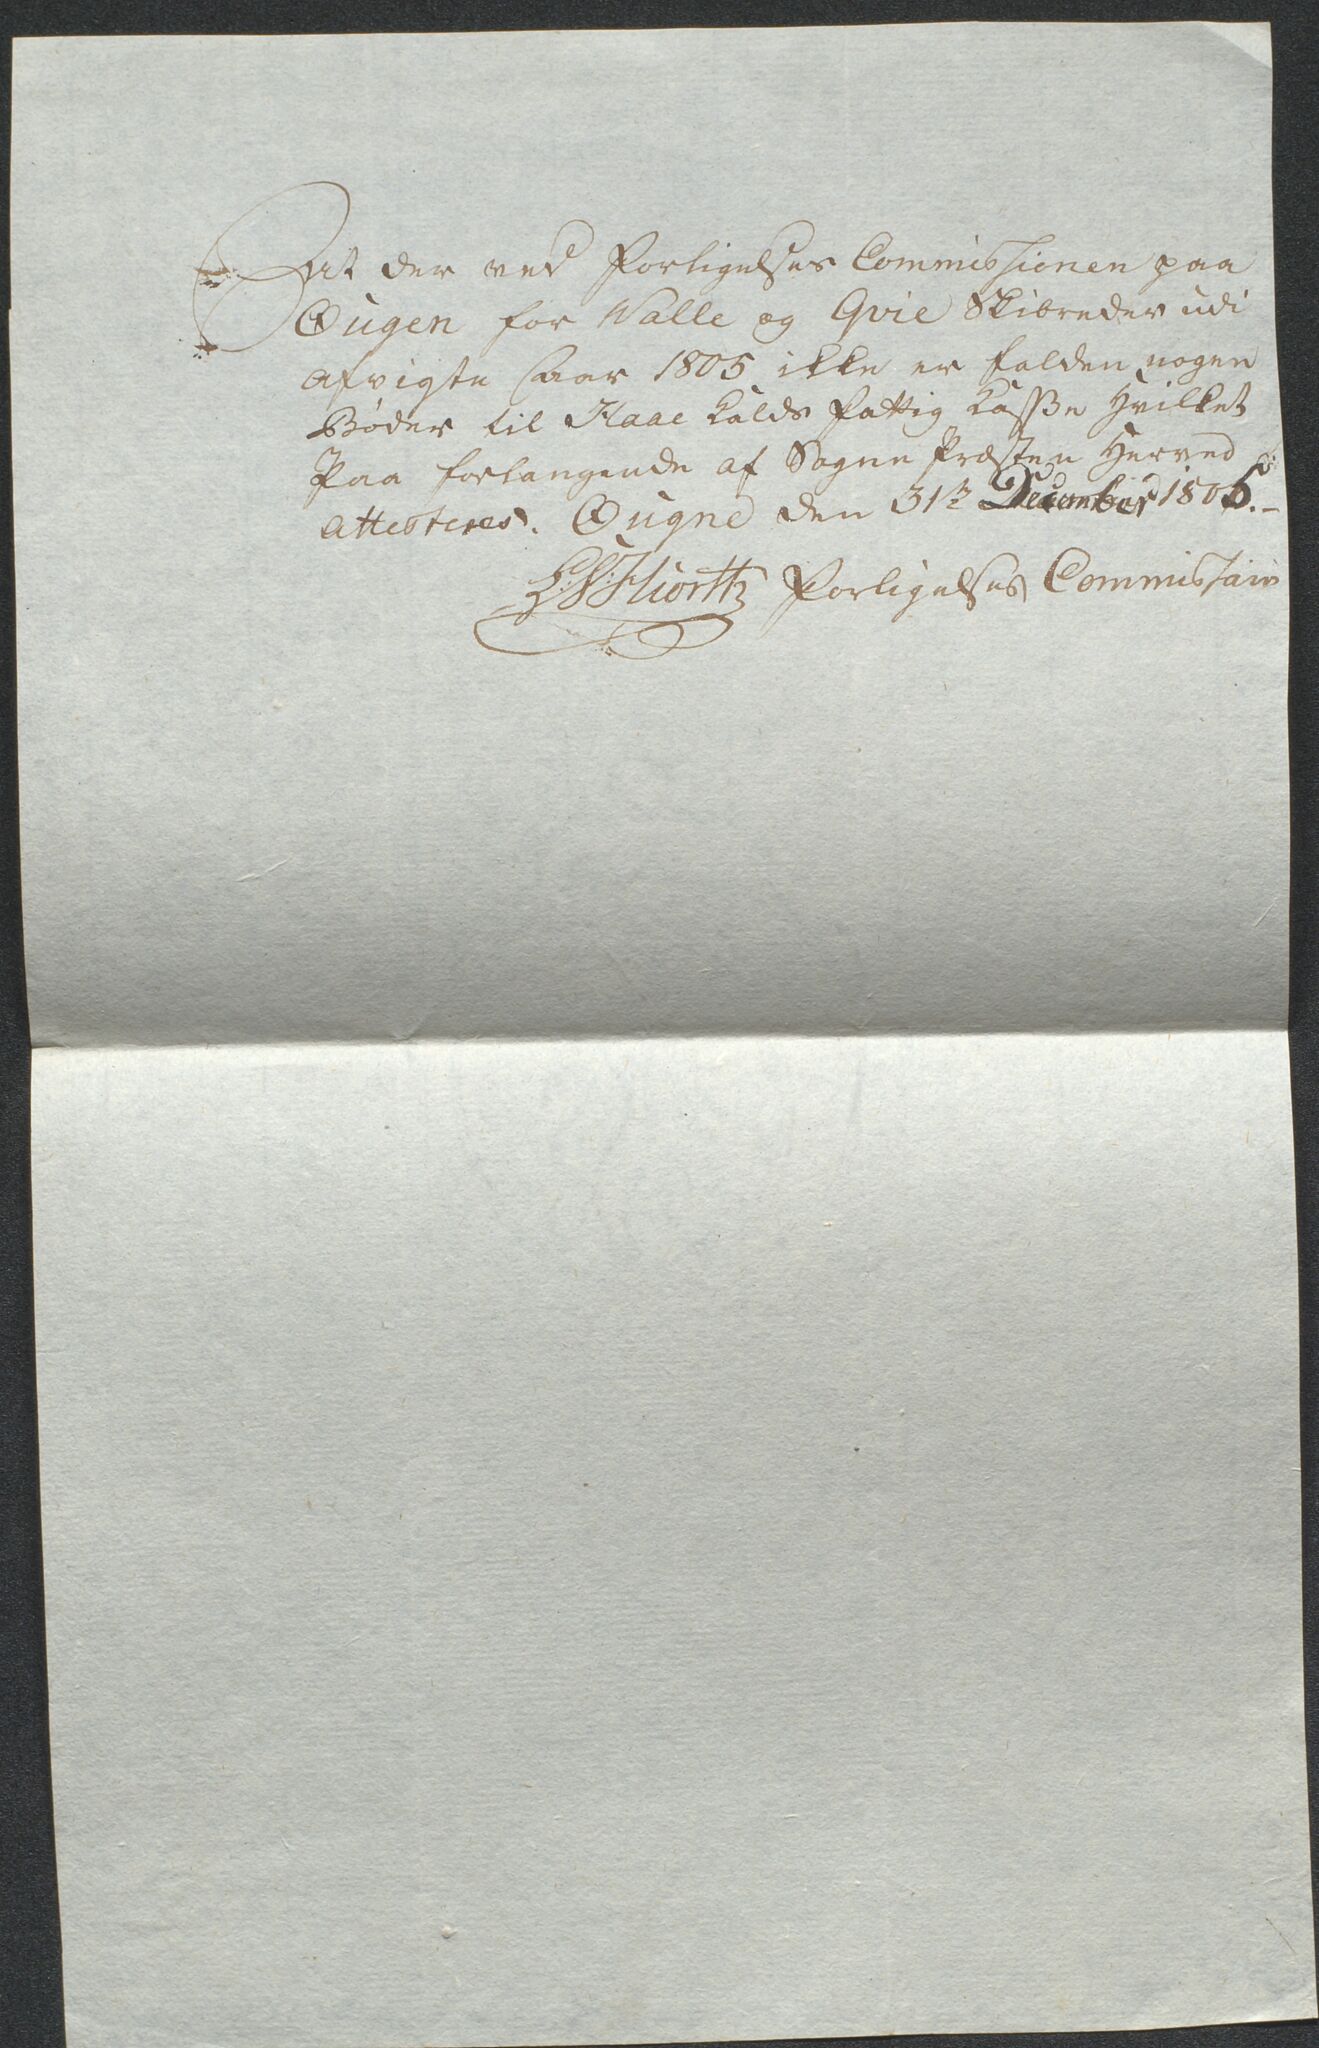 At der ved Forligelses Commissionen paa
Øugen for Nalle og Gvie Skibreder udi
afvigte Aar 1805 ikke er falden nogen
Bøder til Haae Kalds Fattig Kasse Hvilket
Paa forlangende af Sogne Præsten Herved
Attesteres. Øugne den 31te December 1805.
Hiorth Forligelses Commissair